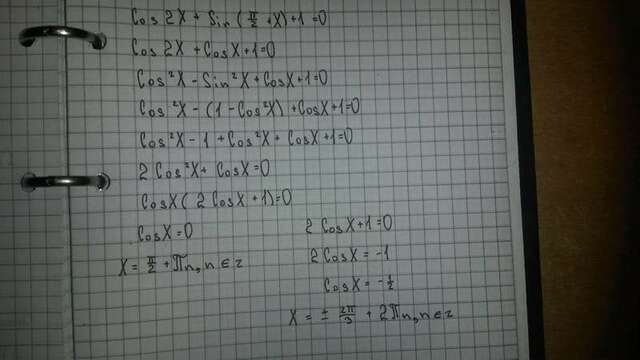 Cos 2X + Sin (π/2 + X) + 1 = 0
Cos 2X + Cos X + 1 = 0
Cos²X - Sin²X + Cos X + 1 = 0
Cos²X - (1 - Cos²X) + Cos X + 1 = 0
Cos²X - 1 + Cos²X + Cos X + 1 = 0
2 Cos²X + Cos X = 0
Cos X ( 2 Cos X + 1) = 0
Cos X = 0
X = π/2 + πn, n ∈ z
2 Cos X + 1 = 0
2 Cos X = -1
Cos X = -1/2
X = ± 2π/3 + 2πn, n ∈ z